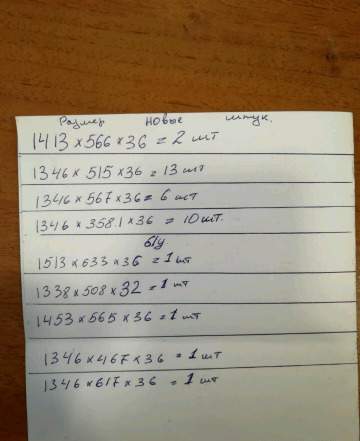 Размер новые штук.
1413×566×36=2 шт
1346×515×36=13 шт
1346×567×36=6 шт
1346×358.1×36=10 шт.
б/у
1513×633×36=1 шт
1338×508×32=1 шт
1453×565×36=1 шт
1346×467×36=1 шт
1346×617×36=1 шт